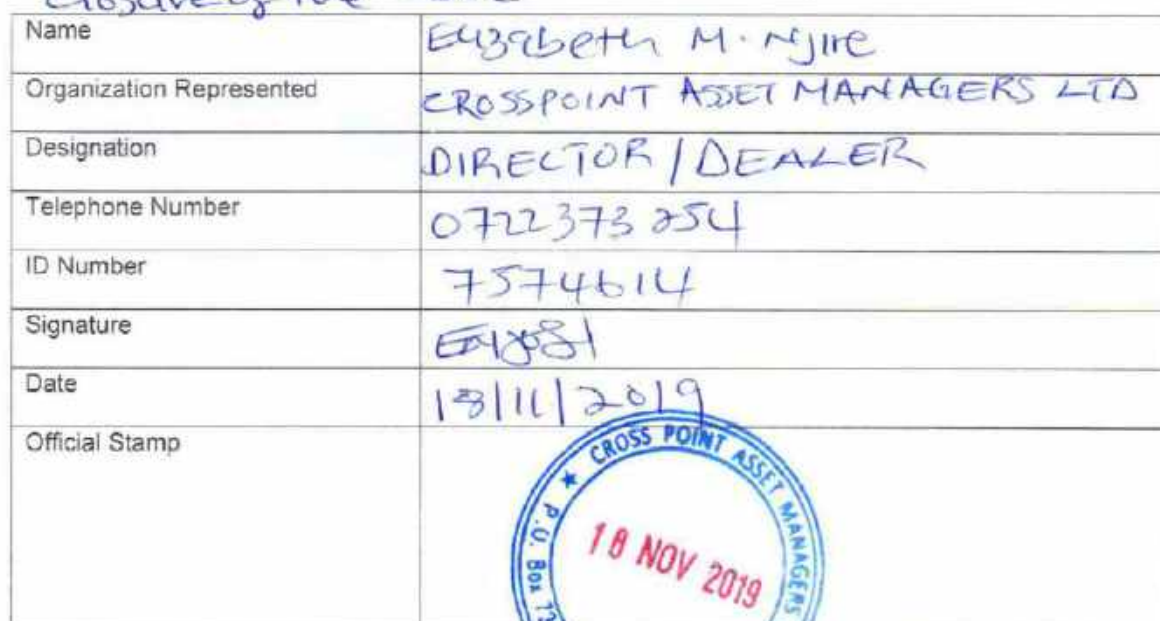 closure of the
Name Elizabeth M. Njire
Organization Represented CROSSPOINT ASSET MANAGERS LTD
Designation DIRECTOR / DEALER
Telephone Number 0722373254
ID Number 7574614
Signature
Date 18/11/2019
Official Stamp
★ CROSS POINT ASSET MANAGERS
18 NOV 2019
P.O. Box